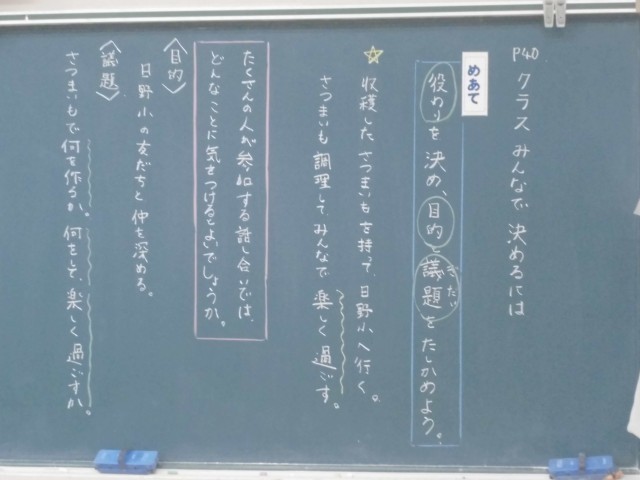 P40 クラスみんなで決めるには
めあて
役わりを決め、目的と議題をたしかめよう。
ぎだい
☆収穫したさつまいもを持って、日野小へ行く。
さつまいも調理してみんなで楽しく過ごす。
たくさんの人が参加する話し合いでは、
どんなことに気をつけるとよいでしょうか。
〈目的〉
日野小の友だちと仲を深める。
〈議題〉
さつまいもで何を作るか。何をして、楽しく過ごすか。